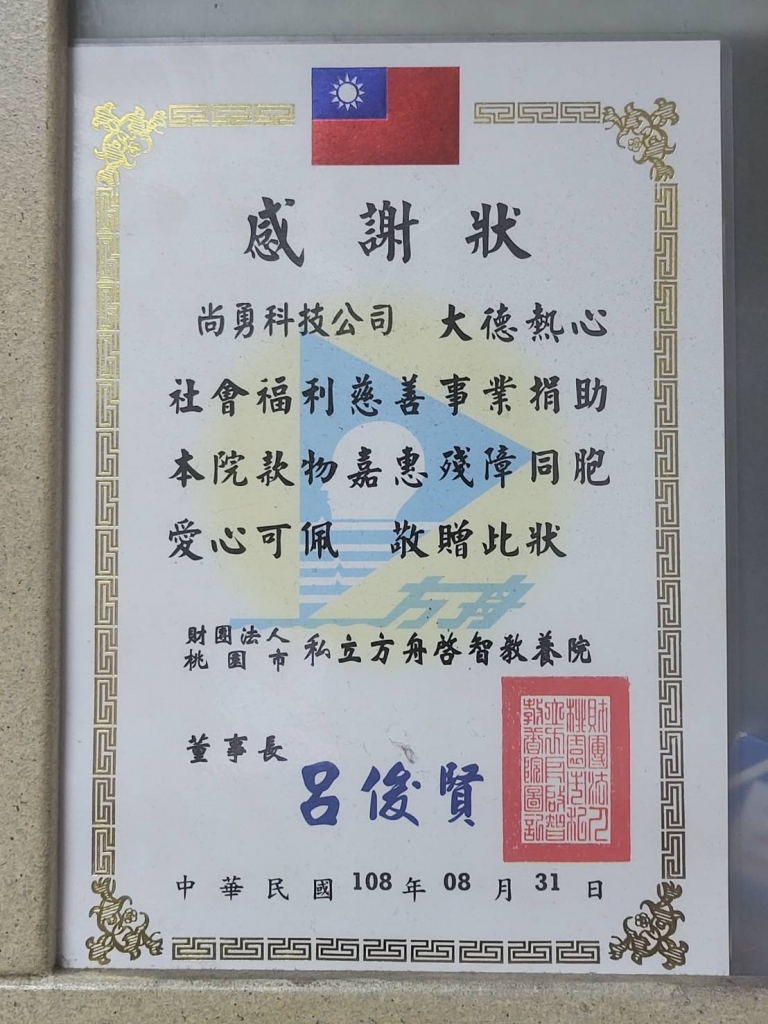 感謝狀
尚勇科技公司 大德熱心
社會福利慈善事業捐助
本院款物嘉惠殘障同胞
愛心可佩 敬贈此狀
方舟
財團法人
桃園市 私立方舟啓智教養院
董事長
呂俊賢
財團法人
桃園市私
立方舟啟智
教養院圖記
中華民國 108 年 08 月 31 日